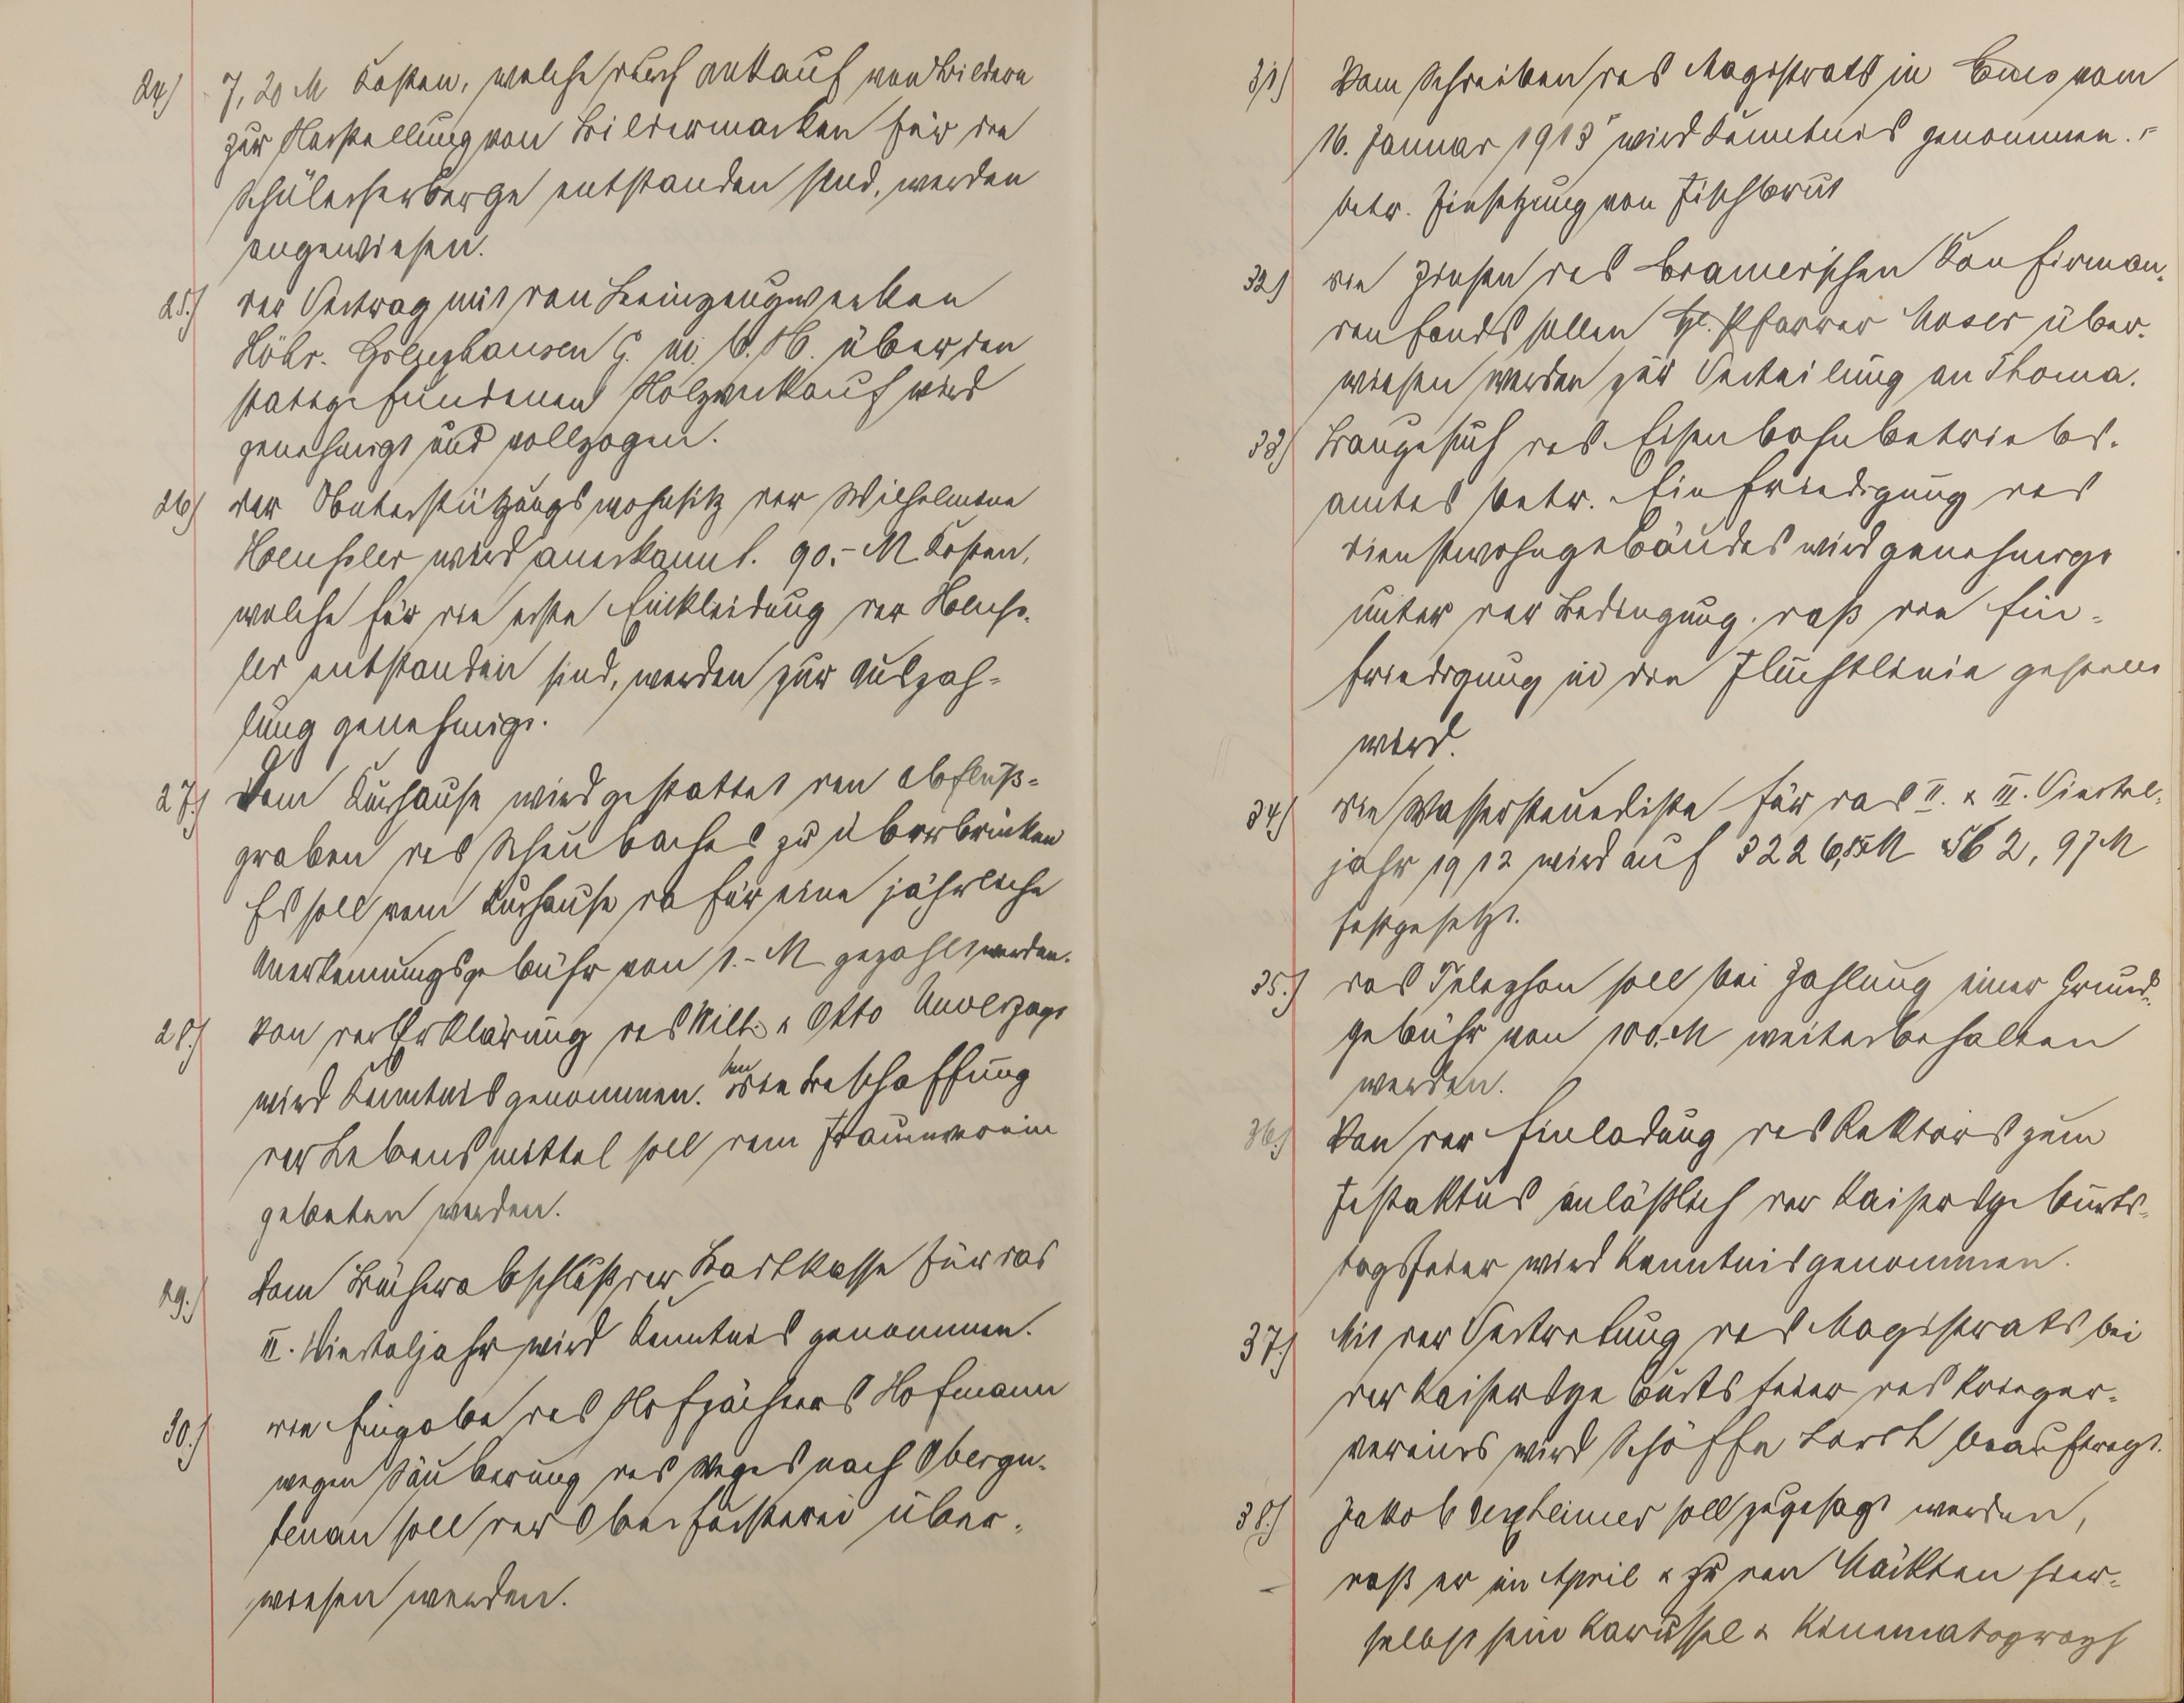 24.) 7,20 M Kosten, welche durch Ankauf von Bildern
zur Herstellung von Bildermarken für die
Schülerherberge entstanden sind, werden
angewiesen.
25.) der Vertrag mit den Steinzeugwerken
Höhr-Grenzhausen G. m. b. H. über den
stattgefundenen Holzverkauf wird
genehmigt und vollzogen.
26.) der Unterstützungswohnsitz der Wilhelmine
wird anerkannt. 90.- M Kosten,
welche für die erste Einkleidung der
ler entstanden sind, werden zur Auszah-
lung genehmigt.
27.) Dem Kurhause wird gestattet den Abfluß-
graben des baches zu überbrücken
Es soll vom Kurhause dafür eine jährliche
Anerkennungsgebühr von 1.- M gezahlt werden.
28.) Von der Erklärung des Wilh. & Otto Unverzagt
wird Kenntnis genommen. die Beschaffung
der Lebensmittel soll dem Frauenverein
gebeten werden.
29.) Vom Bücherabschluß der Stadtkasse für das
III. Vierteljahr wird Kenntnis genommen.
30.) die Eingabe des Hofpächters Hofmann
wegen Säuberung des Weges nach Obergu-
tenau soll der Oberförsterei über-
wiesen werden.
31.) Vom Schreiben des Magistrats in Ems vom
16. Januar 1913 wird Kenntnis genommen.
betr. Einsetzung von Fischbrut
32.) die Zinsen des Cramerischen Konfirman-
denfonds sollen H. Pfarrer Moser über-
wiesen werden zur Verteilung an Thoma.
33.) Baugesuch des Eisenbahnbetriebs-
amtes betr. Einfriedigung des
Dienstwohngebäudes wird genehmigt
unter der Bedingung, daß die Ein-
friedigung in die Fluchtlinie gestellt
wird.
34.) die Wassersteuerliste für das II. & III. Viertel-
jahr 1912 wird auf 3226,55 M & 562,97 M
festgesetzt.
35.) das Telephon soll bei Zahlung einer Grund-
gebühr von 100.- M weiterbehalten
werden.
36.) Von der Einladung des Rektors zum
Festaktus anläßlich der Kaisersgeburts-
tagsfeier wird Kenntnis genommen.
37.) Mit der Vertretung des Magistrats bei
der Kaisersgeburtsfeier des Krieger-
vereines wird Schöffe beauftragt.
38.) Jakob soll zugesagt werden,
daß er im April & zu den Märkten hier-
selbst sein Karussel & Kinematograph